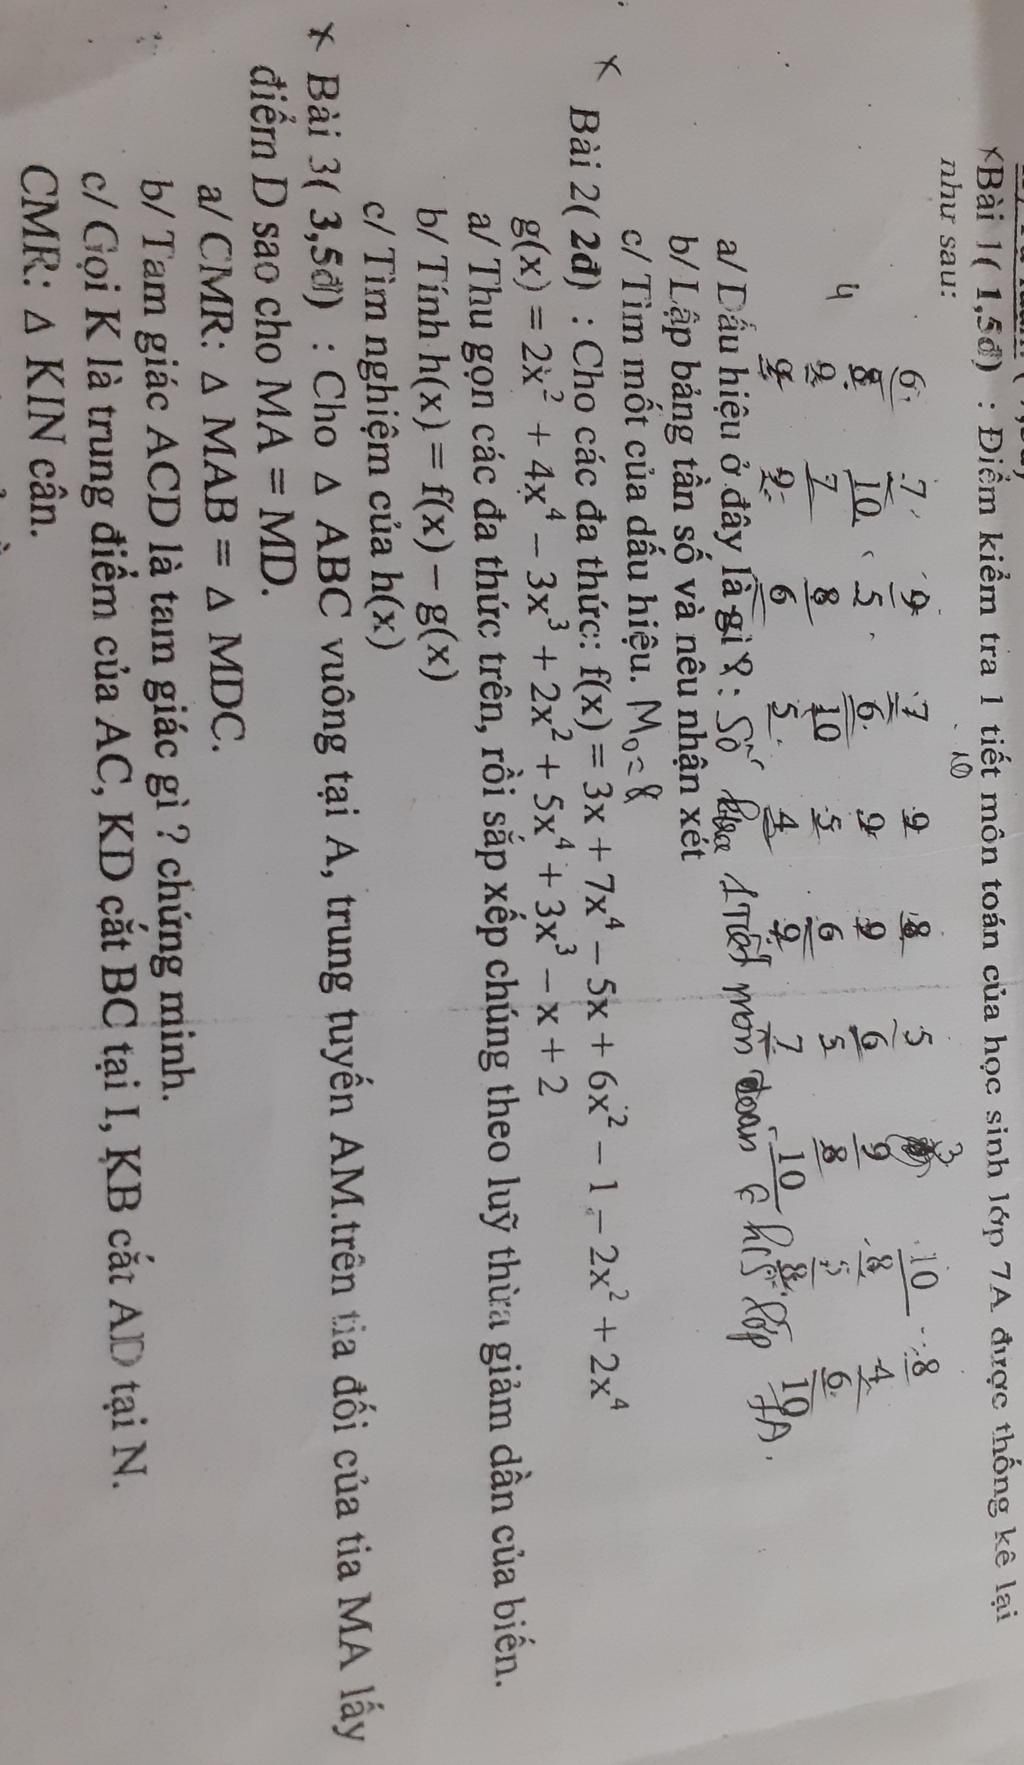 ×Bài 1( 1,5đ) : Điểm kiểm tra 1 tiết môn toán của học sinh lớp 7A được thống kê lại
như sau:
10
6 7 9 7 9 8 5 3 10 8
8 10 5 6 9 9 6 9 8 4
4 9 7 8 10 5 6 5 8 5 6
9 9 6 5 4 9 7 10 8 10
a/ Dấu hiệu ở đây là gì ?: Số 1 Tiết môn toán lớp 7A.
b/ Lập bảng tần số và nêu nhận xét
c/ Tìm mốt của dấu hiệu. M₀ = 8
× Bài 2( 2đ) : Cho các đa thức: f(x) = 3x + 7x⁴ – 5x + 6x² – 1 – 2x² + 2x⁴
g(x) = 2x² + 4x⁴ – 3x³ + 2x² + 5x⁴ + 3x³ – x + 2
a/ Thu gọn các đa thức trên, rồi sắp xếp chúng theo luỹ thừa giảm dần của biến.
b/ Tính h(x) = f(x) – g(x)
c/ Tìm nghiệm của h(x)
× Bài 3( 3,5đ) : Cho Δ ABC vuông tại A, trung tuyến AM.trên tia đối của tia MA lấy
điểm D sao cho MA = MD.
a/ CMR: Δ MAB = Δ MDC.
b/ Tam giác ACD là tam giác gì ? chứng minh.
c/ Gọi K là trung điểm của AC, KD cắt BC tại I, KB cắt AD tại N.
CMR: Δ KIN cân.